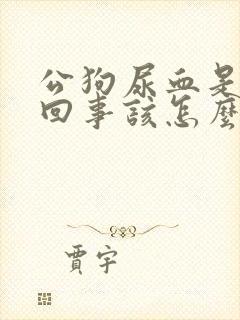 公狗尿血是
回事该怎麼
賈宇